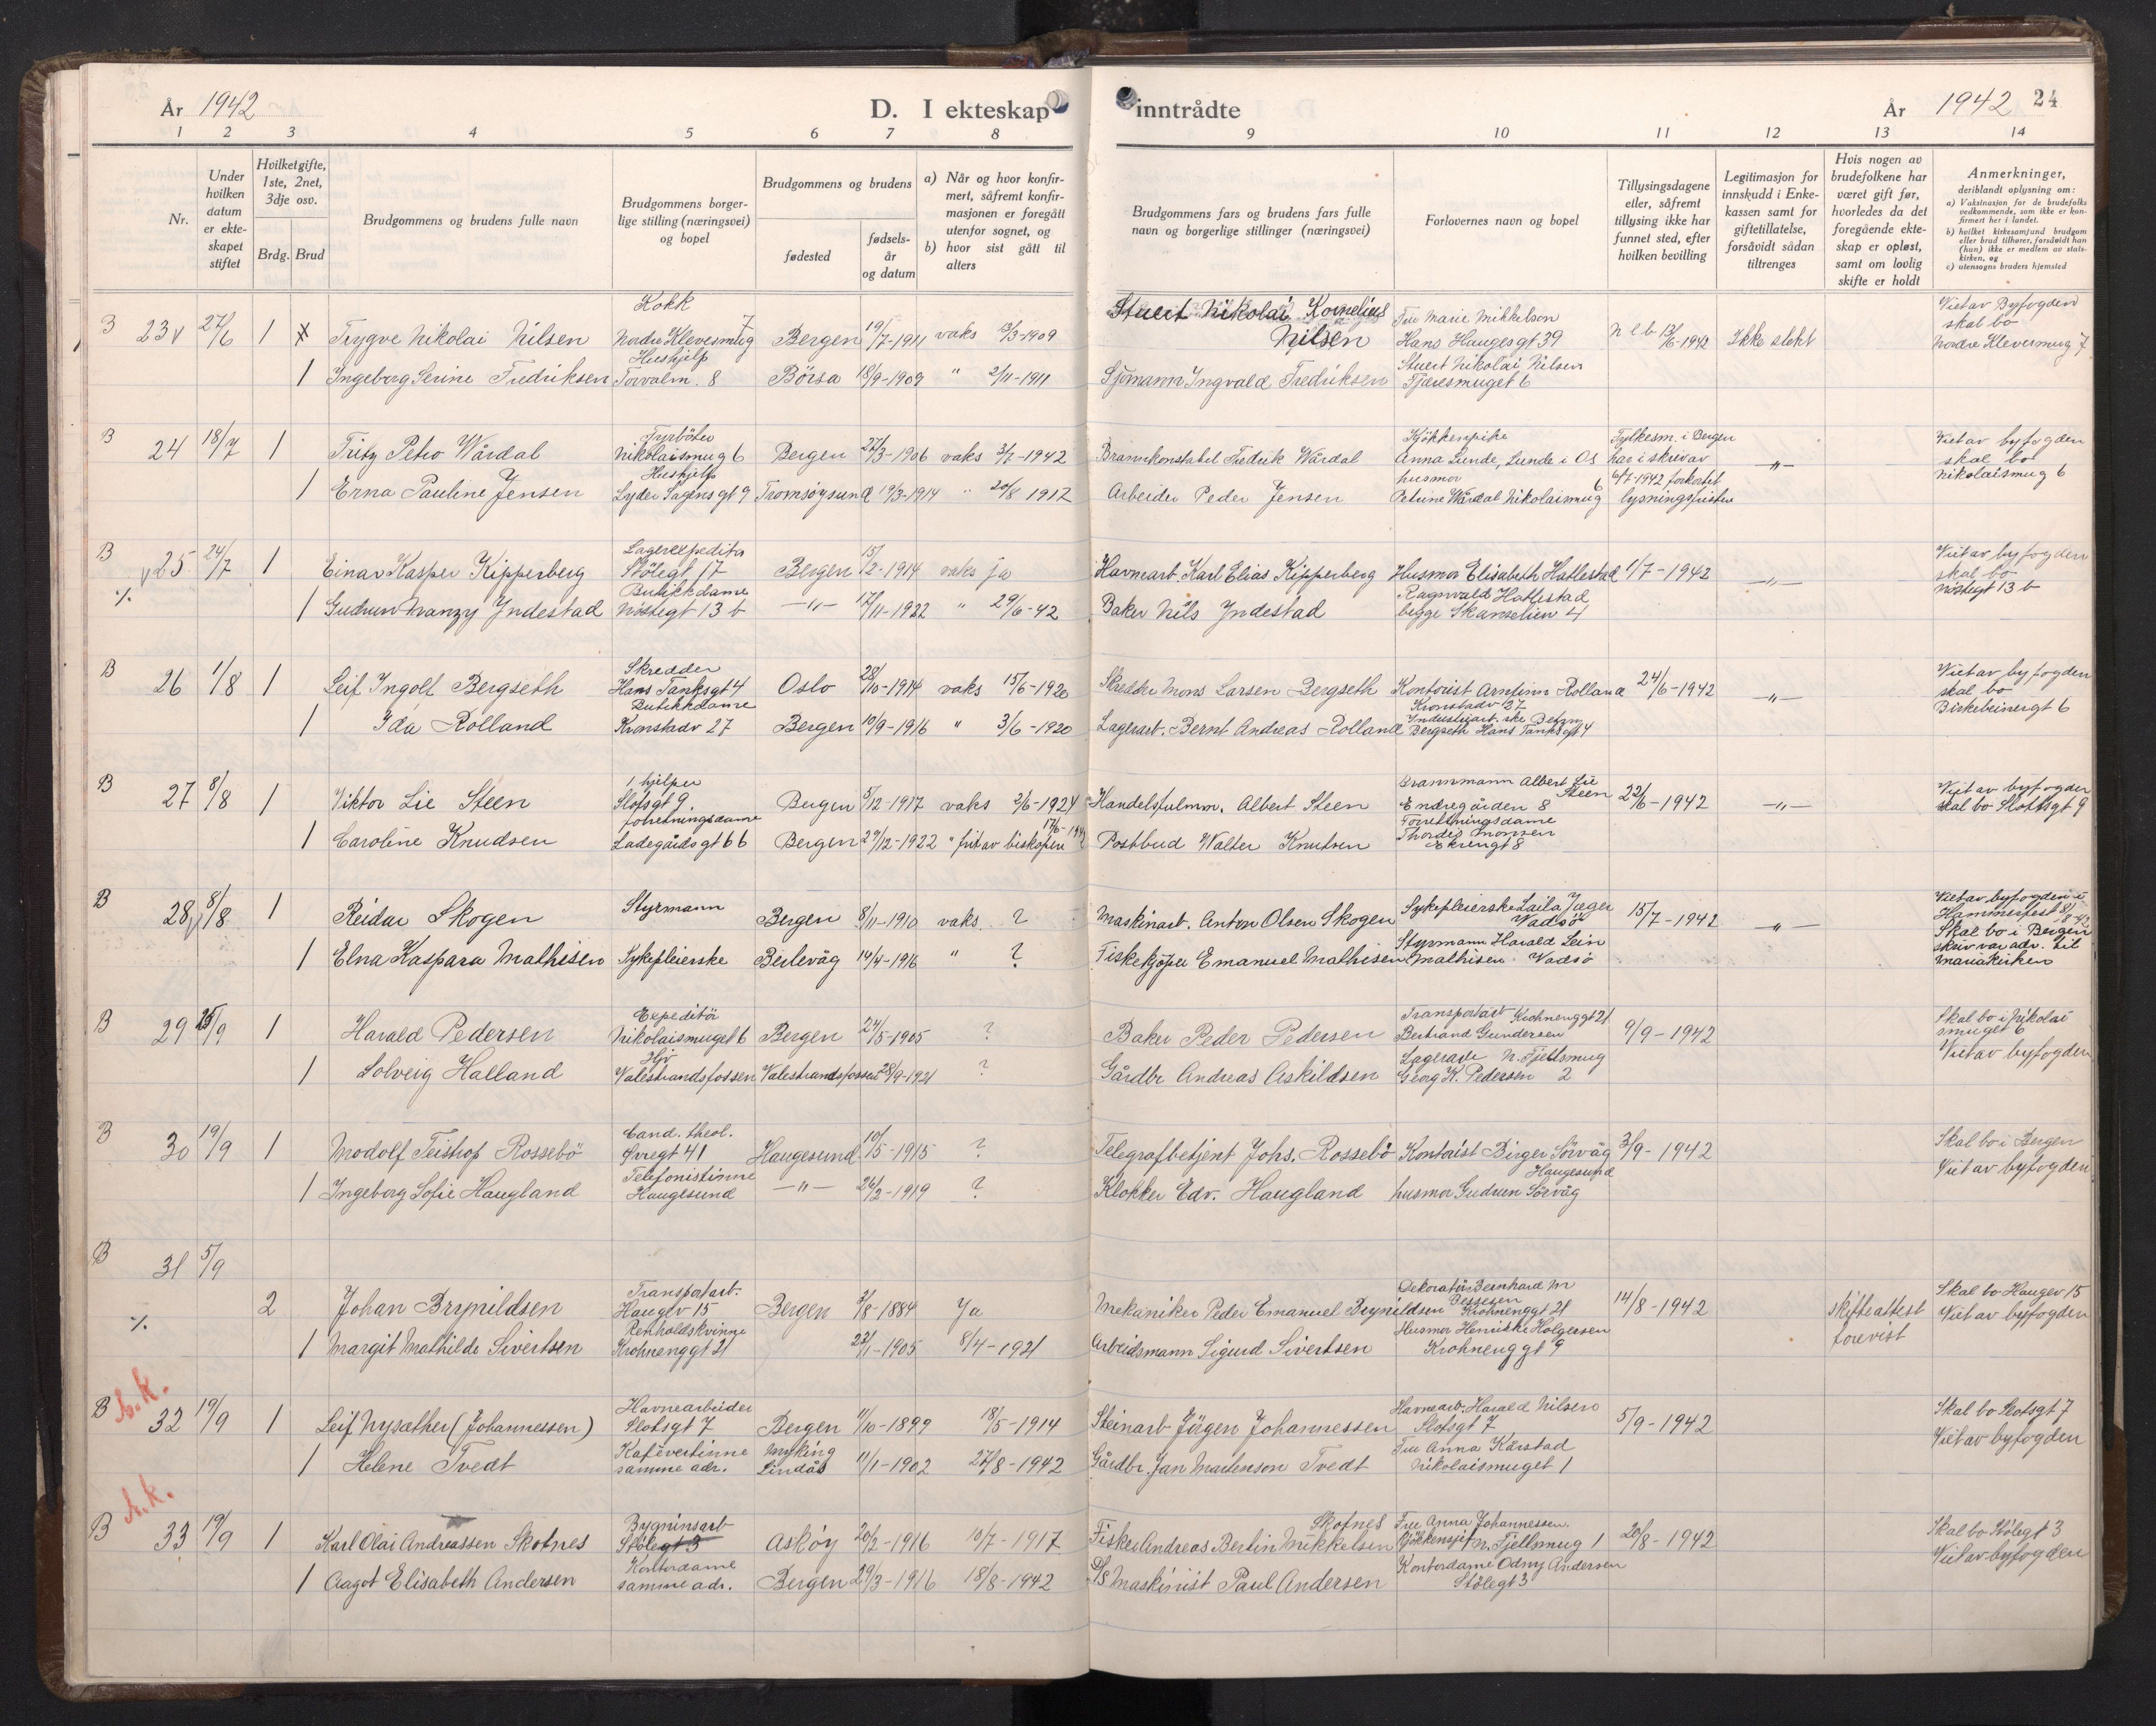 År 1942
D. I ekteskap inntrådte
År 1942 24
1 2 3 4 5 6 7 8 9 10 11 12 13 14
Nr.
Under hvilken datum er ekteskapet stiftet
Hvilket gifte, 1ste, 2net, 3dje osv.
Brdg. Brud
Brudgommens og brudens fulle navn
Brudgommens borgerlige stilling (næringsvei) og bopel
Brudgommens og brudens
fødested
fødselsår og datum
a) Når og hvor konfirmert, såfremt konfirmasjonen er foregått utenfor sognet, og
b) hvor sist gått til alters
Brudgommens fars og brudens fars fulle navn og borgerlige stillinger (næringsvei)
Forlovernes navn og bopel
Tillysingsdagene eller, såfremt tillysing ikke har funnet sted, efter hvilken bevilling
Legitimasjon for innskudd i Enkekassen samt for giftetillatelse, forsåvidt sådan tiltrenges
Hvis nogen av brudefolkene har været gift før, hvorledes da det foregående ekteskap er opløst, samt om lovlig skifte er holdt
Anmerkninger, deriblandt oplysning om:
a) Vaksinasjon for de brudefolks vedkommende, som ikke er konfirmert her i landet.
b) hvilket kirkesamfund brudgom eller brud tilhører, forsåvidt han (hun) ikke er medlem av statskirken, og
c) utensogns bruders hjemsted
B 23 27/6 1 Trygve Nikolai Nilsen Kokk Nordre Klevesmug 7 Bergen 19/7-1911 vaks 13/3-1909 Stuert Nikolai Kornelius Nilsen Fru Marie Mikkelsen Hans Haugesgt 39 n l b 13/6-1942 Ikke slekt Viet av Byfogden skal bo Nordre Klevesmug 7
1 Ingeborg Serine Fredriksen Hushjelp Torvalm. 8 Börsa 18/9-1909 " 2/11-1911 Sjömann Ingvald Fredriksen Stuert Nikolai Nilsen Fjæresmuget 6
B 24 18/7 1 Fritz Petro Wårdal Fyrböter Nikolaismug 6 Bergen 27/3-1906 vaks 3/7-1942 Brannkonstabel Fredrik Wårdal Kjökkenpike Anna Lunde, Lunde i Os Fylkesm. i Bergen har i skriv av 4/7-1942 forkortet lysningsfristen -"- Viet av byfogden skal bo Nikolaismug 6
1 Erna Pauline Jensen Hushjelp Lyder Sagens gt 9 Tromsöysund 19/3-1914 " 20/8 1912 Arbeider Peder Jensen husmor Petrine Wårdal Nikolaismug 6
B 25 24/7 1 Einar Kasper Kipperberg Lagerexpeditør Stölegt 17 Bergen 15/2-1914 vaks ja Havnearb. Karl Elias Kipperberg Husmor Elisabeth Hatlestad 1/7-1942 -"- Viet av byfogden skal bo Nöstegt 13 b
%. 1 Gudrun Nanzy Yndestad Butikkdame Nöstegt 13 b -"- 17/11-1922 " 29/6-42 Baker Nils Yndestad Ragnvald Hatlestad begge Skanselien 4
B 26 1/8 1 Leif Ingolf Bergseth Skredder Hans Tanksgt 4 Oslo 28/10-1914 vaks 15/6-1920 Skredder Mons Larsen Bergseth Kontorist Arnfinn Rolland Kronstadv 37 24/6-1942 -"- Viet av byfogden skal bo Birkebeinergt 6
1 Ida Rolland Butikkdame Kronstadv 27 Bergen 10/9-1916 " 3/6-1920 Lagerarb. Bernt Andreas Rolland Industriarb.ske Bergseth Hans Tanksgt 4
B 27 8/8 1 Viktor Lie Steen hjelper Slotsgt 9. Bergen 5/12-1917 vaks 2/6-1924 Handelsfulm. Albert Steen Brannmann Albert Lie Steen Endregården 8 22/6-1942 -"- Viet av byfogden skal bo Slottsgt 9
1 Caroline Knudsen forretningsdame Ladegårdsgt 66 Bergen 29/12-1922 " frit av biskopen Postbud Walter Knutsen Forretningsdame Thordis Monsen Ekrengt 8
B 28 8/8 1 Reidar Skogen Styrmann Bergen 8/11-1910 vaks ? Maskinarb. Anton Olsen Skogen Sykepleierske Laila Jæger Vadsö 15/7-1942 -"- Viet av byfogden i Hammerfest 8/8-42 Skal bo i Bergen skriv var adr. til Mariakirken
1 Elna Kaspara Mathisen Sykepleierske Berlevåg 14/4-1916 " ? Fiskekjöper Emanuel Mathisen Styrmann Harald Lein Mathisen Vadsö
B 29 25/9 1 Harald Pedersen Expeditör Nikolaismuget 6 Bergen 24/5-1905 ? Baker Peder Pedersen Transportarb Krohnenggt 21 Bertrand Gundersen 9/9-1942 Skal bo i Nikolaismuget 6 Viet av byfogden
1 Solveig Halland Hjv Valestrandsfossen Valestrandsfossen 28/9-1921 ? Gårdbr Andreas Askildsen Lagerarb N. Fjellsmug 2 Georg K. Pedersen
B 30 19/9 1 Modolf Teistrop Rossebö Cand. theol. Øvregt 41 Haugesund 10/5-1915 ? Telegrafbetjent Johs. Rossebö Kontorist Birger Sörvåg Haugesund 3/9-1942 Skal bo i Bergen Viet av byfogden
1 Ingeborg Sofie Haugland Telefonistinne Haugesund -"- 26/2-1919 ? Klokker Edv. Haugland husmor Gudrun Sörvåg
B 31 5/9
%. 2 Johan Brynildsen Transportarb. Haugev 15 Bergen 3/8-1884 Ja Mekaniker Peder Emanuel Brynildsen Dekoratör Bernhard M Bessesen Krohnenggt 21 14/8-1942 skifteattest forevist Skal bo Haugev 15 Viet av byfogden
1 Margit Mathilde Sivertsen Renholdskvinne Krohnenggt 21 23/1-1905 8/4-1921 Arbeidsmann Sigurd Sivertsen Husmor Henrikke Holgersen Krohnenggt 9
B 32 19/9 1 Leif Nysæther (Johannessen) Havnearbeider Slotsgt 7 Bergen 11/10-1899 18/5-1914 Steinarb Jörgen Johannessen Havnearb. Harald Nilsen Slotsgt 7 5/9-1942 Skal bo Slotsgt 7 Viet av byfogden
1 Helene Tvedt Kafévertinne samme adr. Myking Lindås 11/1-1902 27/8-1942 Gårdbr. Jan Martenson Tvedt Fru Anna Kårstad Nikolaismuget 1
B 33 19/9 1 Karl Olai Andreassen Skotnes Bygninsarb Stölegt 3 Asköy 20/2-1916 10/7-1917 Fisker Andreas Bertin Mikkelsen Skotnes Fru Anna Johannessen. Kjökkensjef N. Fjellsmug 1 20/8-1942 Skal bo Stölegt 3 Viet av byfogden
1 Aagot Elisabeth Andersen Kontordame samme adr. Bergen 29/3-1916 18/8-1942 D/S Maskinist Paul Andersen Kontordame Odny Andersen Stölegt 3